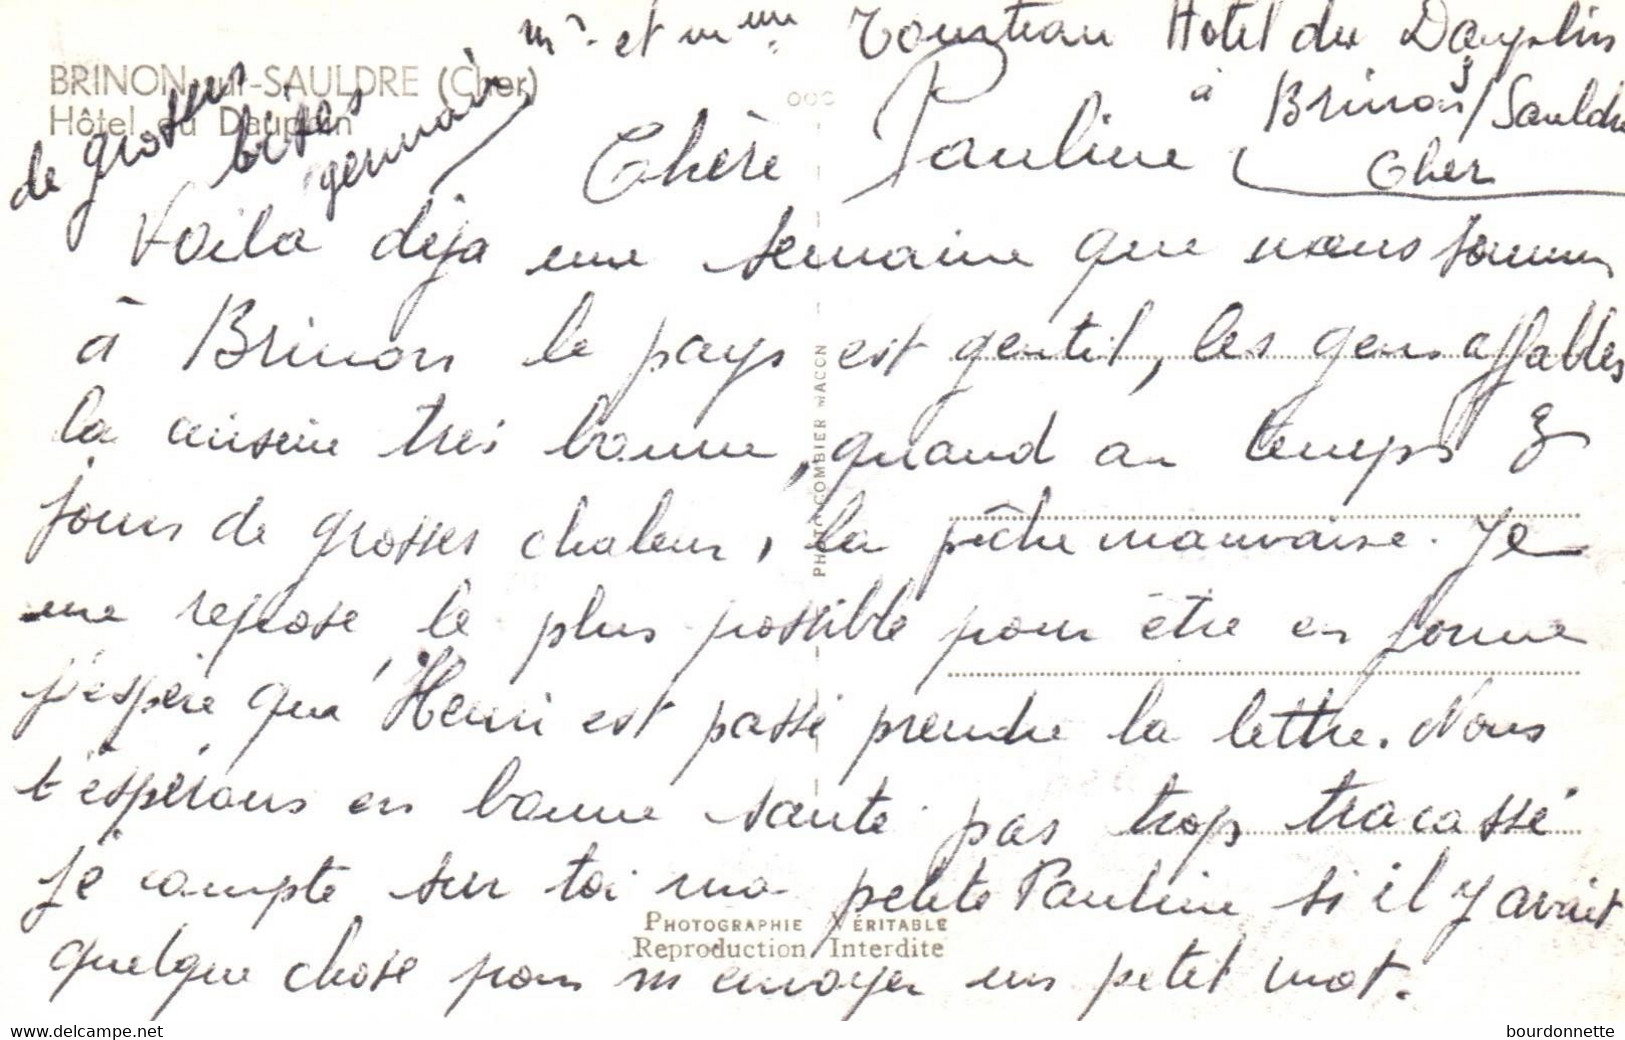 Mr et Mme Tousteau Hotel du Dauphin
à Brinon s/ Sauldre
Cher
BRINON-sur-SAULDRE (Cher)
Hôtel du Dauphin
de grosses
bises
germain
Chère Pauline
Voila déja une semaine que nous sommes
à Brinon le pays est gentil, les gens affables
la cuisine très bonne, quand au temps 3
jours de grosses chaleurs, la pêche mauvaise. Je
me repose le plus possible pour être en forme
j'espère que Henri est passé prendre la lettre. Nous
t'espérons en bonne santé pas trop tracassé
je compte sur toi ma petite Pauline si il y avait
quelque chose pour m'envoyer un petit mot.
PHOTO COMBIER MACON
PHOTOGRAPHIE VÉRITABLE
Reproduction Interdite
www.delcampe.net
bourdonnette